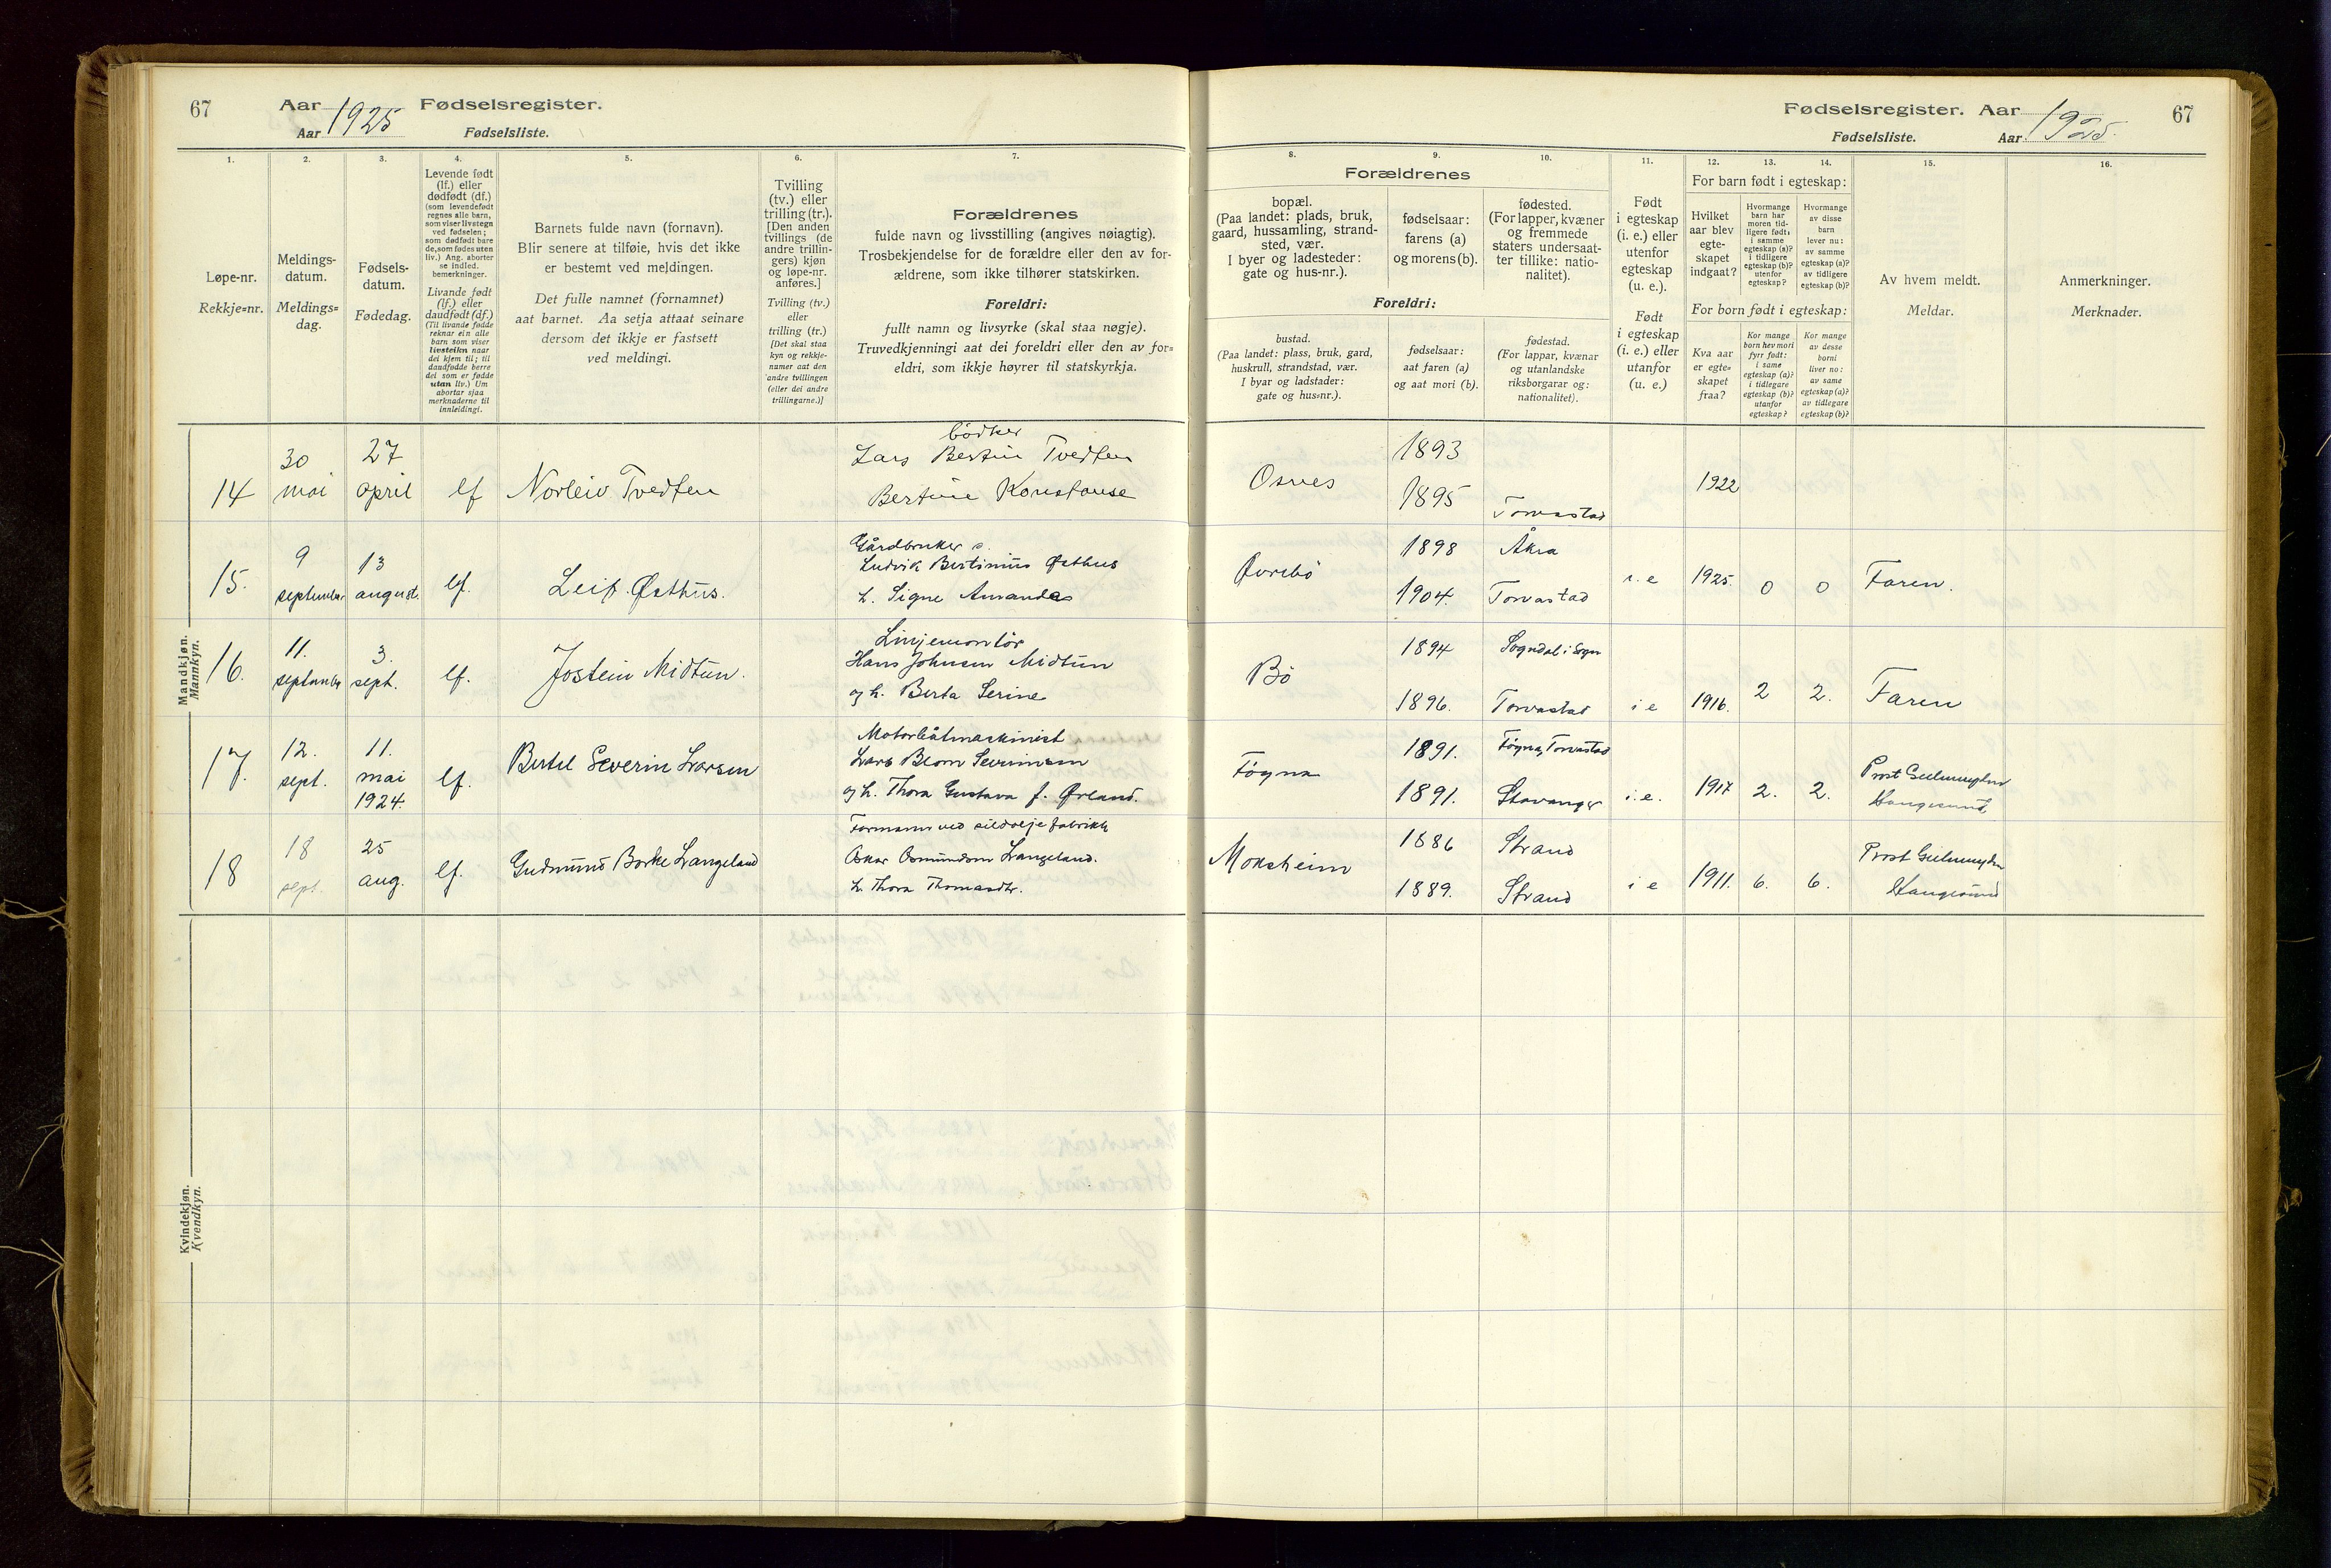 67
Aar 1925 Fødselsregister.
Aar Fødselsliste.
1.
2.
3.
4.
5.
6.
7.
Løpe-nr.
Rekkje=nr.
Meldings-
datum.
Meldings=
dag.
Fødsels-
datum.
Fødedag.
Levende født
(lf.) eller
dødfødt (df.)
(som levendefødt
regnes alle barn,
som viser livstegn
ved fødselen;
som dødfødt bare
de, som fødes uten
liv.) Ang. aborter
se indled.
bemerkninger.
Livande født
(lf.) eller
daudfødt (df.)
(Til livande fødde
reknar ein alle
barn som viser
livsteikn naar
dei kjem til; til
daudfødde berre
dei som er fødde
utan liv.) Um
abortar sjaa
merknaderne til
innleidingi.
Barnets fulde navn (fornavn).
Blir senere at tilføie, hvis det ikke
er bestemt ved meldingen.
Det fulle namnet (fornamnet)
aat barnet. Aa setja attaat seinare
dersom det ikkje er fastsett
ved meldingi.
Tvilling
(tv.) eller
trilling (tr.).
[Den anden
tvillings (de
andre trillin-
gers) kjøn
og løpe-nr.
anføres.]
Tvilling (tv.)
eller
trilling (tr.)
[Det skal staa
kyn og rekkje-
numer aat den
andre tvillingen
(eller dei andre
trillingarne.)]
Forældrenes
fulde navn og livsstilling (angives nøiagtig).
Trosbekjendelse for de forældre eller den av for-
ældrene, som ikke tilhører statskirken.
Foreldri:
fullt namn og livsyrke (skal staa nøgje).
Truvedkjenningi aat dei foreldri eller den av for=
eldri, som ikkje høyrer til statskyrkja.
Mandkjøn.
Mannkyn.
14
30
mai
27
april
lf
Norleiv Tvedten
bödker
Lars Bertin Tvedten
Bertine Konstanse
15.
9
september
13
august.
lf.
Leif Østhus.
Gårdbruker
Ludvik Bertinius Østhus
h. Signe Amanda
16.
11.
september
3.
sept.
lf.
Jostein Midtun.
Linjemontör
Hans Johnsen Midtun
og h. Berta Serine
17.
12.
sept.
11.
mai
1924
lf.
Bertel Severin Larsen
Motorbåtmaskinist
Lars Blom Severinsen
og h. Thora Gustava f. Ørland.
18
18
sept.
25
aug.
lf.
Gudmund Borke Langeland
Formann ved sildoljefabrikk
Oskar Osmundsen Langeland.
h. Thora Thomasdtr.
Kvindekjøn.
Kvendkyn.
Fødselsregister. Aar 1925.
67
Fødselsliste. Aar
8.
9.
10.
11.
12.
13.
14.
15.
16.
Forældrenes
bopæl.
(Paa landet: plads, bruk,
gaard, hussamling, strand-
sted, vær.
I byer og ladesteder:
gate og hus-nr.).
fødselsaar:
farens (a)
og morens (b).
fødested.
(For lapper, kvæner
og fremmede
staters undersaat-
ter tillike: natio-
nalitet).
Foreldri:
bustad.
(Paa landet: plass, bruk, gard,
huskrull, strandstad, vær.
I byar og ladstader:
gate og hus=nr.).
fødselsaar:
aat faren (a)
og aat mori (b).
fødestad.
(For lappar, kvænar
og utanlandske
riksborgarar og:
nationalitet).
Født
i egteskap
(i. e.) eller
utenfor
egteskap
(u. e.).
Født
i egteskap
(i. e.) eller
utanfor
(u. e.)
For barn født i egteskap:
Hvilket
aar blev
egte-
skapet
indgaat?
Hvormange
barn har
moren tid-
ligere født:
i samme
egteskap (a)?
i tidligere
egteskap (b)?
utenfor
egteskap?
Hvormange
av disse
barn
lever nu:
av samme
egteskap (a)?
av tidligere
egteskap (b)?
For born født i egteskap:
Kva aar
er egte=
skapet
fraa?
Kor mange
born hev mori
fyrr født:
i same
egteskap (a)?
i tidlegare
egteskap (b)?
utanfor
egteskap?
Kor mange
av desse
borni
liver no:
av same
egteskap (a)?
av tidlegare
egteskap (b)?
Av hvem meldt.
Meldar.
Anmerkninger.
Merknader.
Osnes
1893
1895
Torvastad
1922
Øvrebö
1898
Åkra
1904.
Torvastad
i. e
1925.
0
0
Faren.
Bö
1894
Sogndal i Sogn
1896.
Torvastad
i e
1916.
2
2.
Faren
Föyna
1891.
Föyna, Torvastad
1891.
Stavanger
i. e.
1917
2.
2.
Prost Gulmuyden
Haugesund
Moksheim
1886
Strand
1889.
Strand
i e
1911.
6.
6.
Prost Gulmuyden
Haugesund